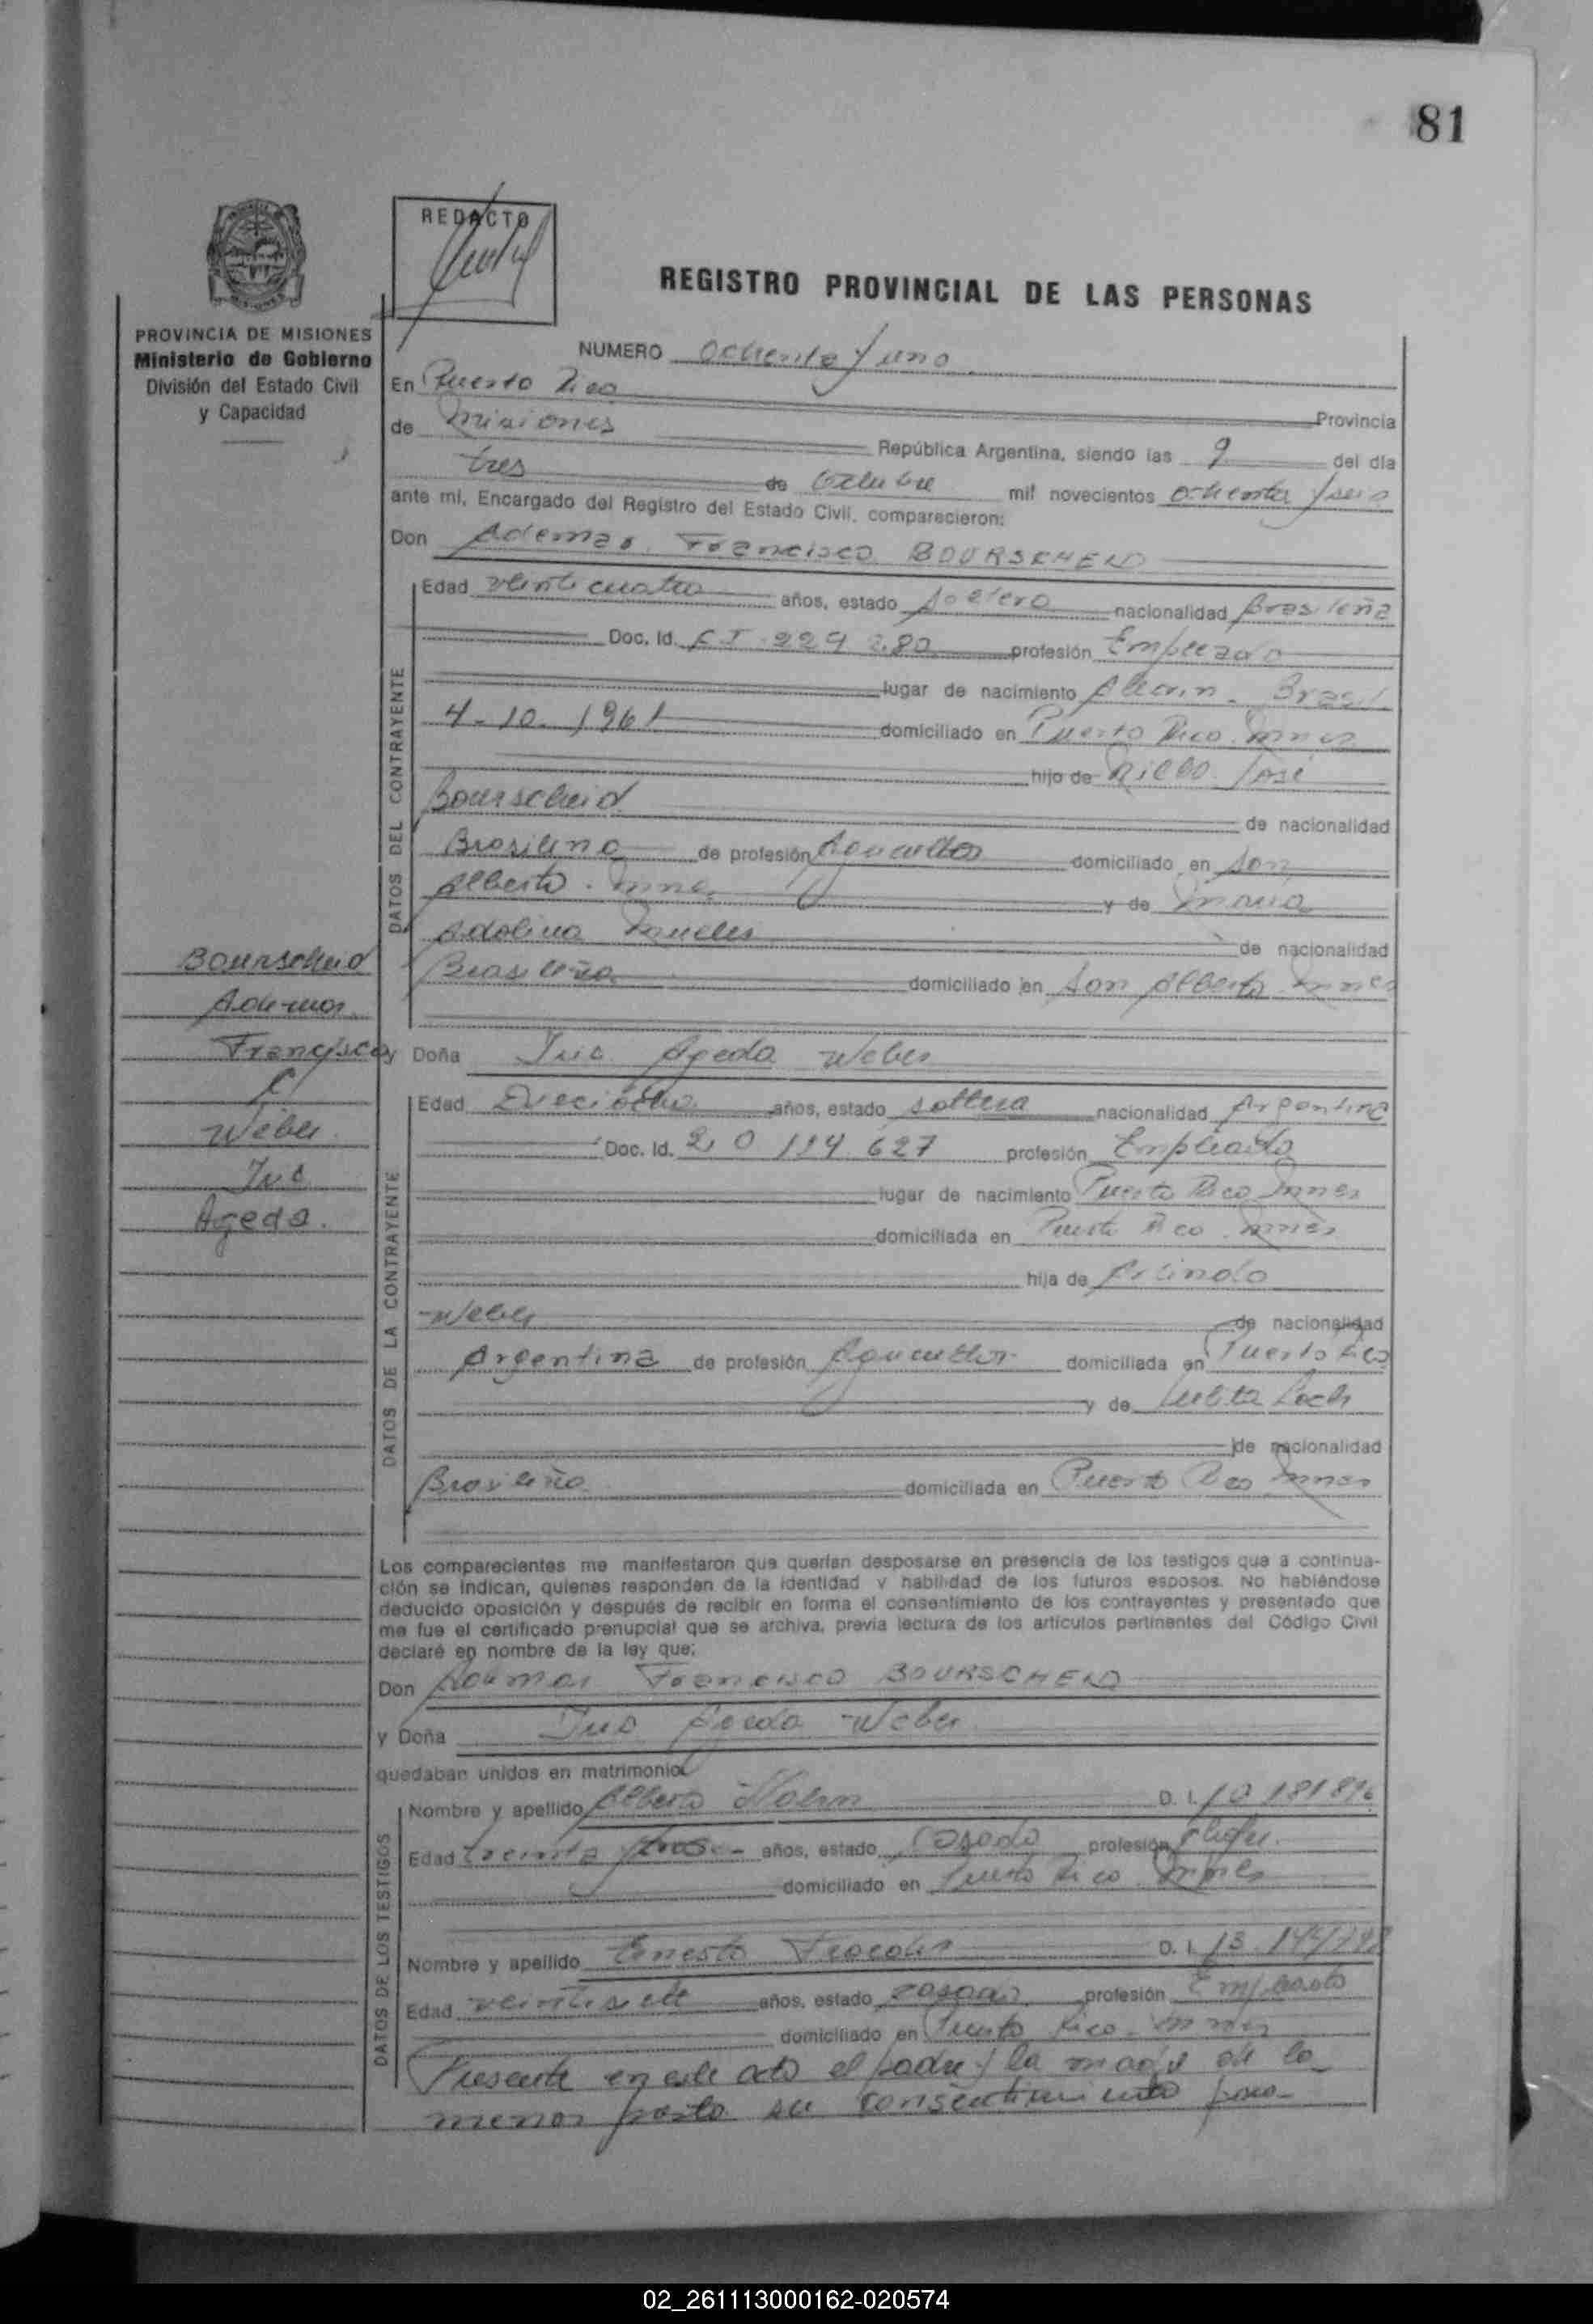 81
REDACTO
REGISTRO PROVINCIAL DE LAS PERSONAS
PROVINCIA DE MISIONES
Ministerio de Gobierno
División del Estado Civil
y Capacidad
NUMERO Ochenta y uno
En Puerto Rico Provincia
de Misiones República Argentina, siendo las 9 del día
tres de Octubre mil novecientos ochenta y seis
ante mí, Encargado del Registro del Estado Civil, comparecieron:
Don Ademar Francisco BOURSCHEID
DATOS DEL CONTRAYENTE
Edad veinticuatro años, estado soltero nacionalidad Brasileña
Doc. Id. CI 229 280 profesión Empleado
lugar de nacimiento Alecrin - Brasil
4-10-1961 domiciliado en Puerto Rico Mnes
hijo de José
Bourscheid de nacionalidad
Brasileña de profesión Agricultor domiciliado en San
Alberto - Mnes y de Maria
Adolina de nacionalidad
Brasileña domiciliado en San Alberto Mnes
Bourscheid
Ademar
Francisco
c/
Weber
Ines
Ageda.
y Doña Ines Ageda Weber
DATOS DE LA CONTRAYENTE
Edad Dieciocho años, estado soltera nacionalidad Argentina
Doc. Id. 20 114 627 profesión Empleada
lugar de nacimiento Puerto Rico Mnes
domiciliada en Puerto Rico Mnes
hija de Arlindo
Weber de nacionalidad
Argentina de profesión Agricultor domiciliada en Puerto Rico
y de Lulita Loch
de nacionalidad
Brasileña domiciliada en Puerto Rico Mnes
Los comparecientes me manifestaron que querían desposarse en presencia de los testigos que a continua-
ción se indican, quienes responden de la identidad y habilidad de los futuros esposos. No habiéndose
deducido oposición y después de recibir en forma el consentimiento de los contrayentes y presentado que
me fue el certificado prenupcial que se archiva, previa lectura de los artículos pertinentes del Código Civil
declaré en nombre de la ley que:
Don Ademar Francisco BOURSCHEID
y Doña Ines Ageda Weber
quedaban unidos en matrimonio
DATOS DE LOS TESTIGOS
Nombre y apellido Alberto D. I. 10 181 816
Edad treinta y tres años, estado Casado profesión Chofer
domiciliado en Puerto Rico Mnes
Nombre y apellido Ernesto D. I. 13
Edad veintisiete años, estado casado profesión Empleado
domiciliado en Puerto Rico - Mnes
Presente en este acto el padre y la madre de la
menor presta su consentimiento para
02_261113000162-020574